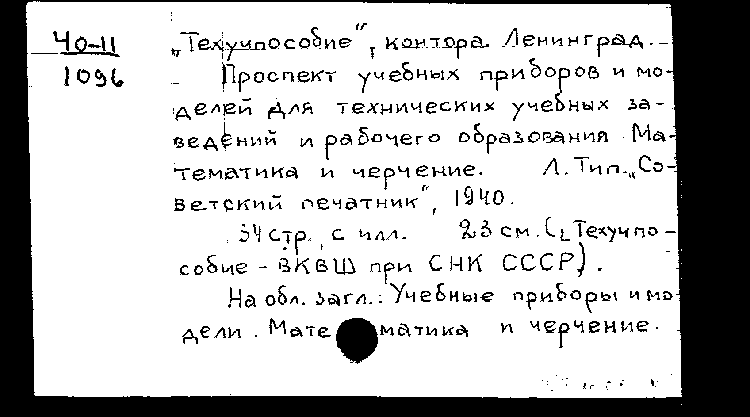 40-11
1096
„Техучпособие“, контора. Ленинград.
Проспект учебных приборов и мо-
делей для технических учебных за-
ведений и рабочего образования. Ма-
тематика и черчение. Л. Тип. „Со-
ветский печатник“, 1940.
34 стр. с илл. 23 см. (Техучпо-
собие - ВКВШ при СНК СССР).
На обл. загл.: Учебные приборы и мо-
дели. Математика и черчение.